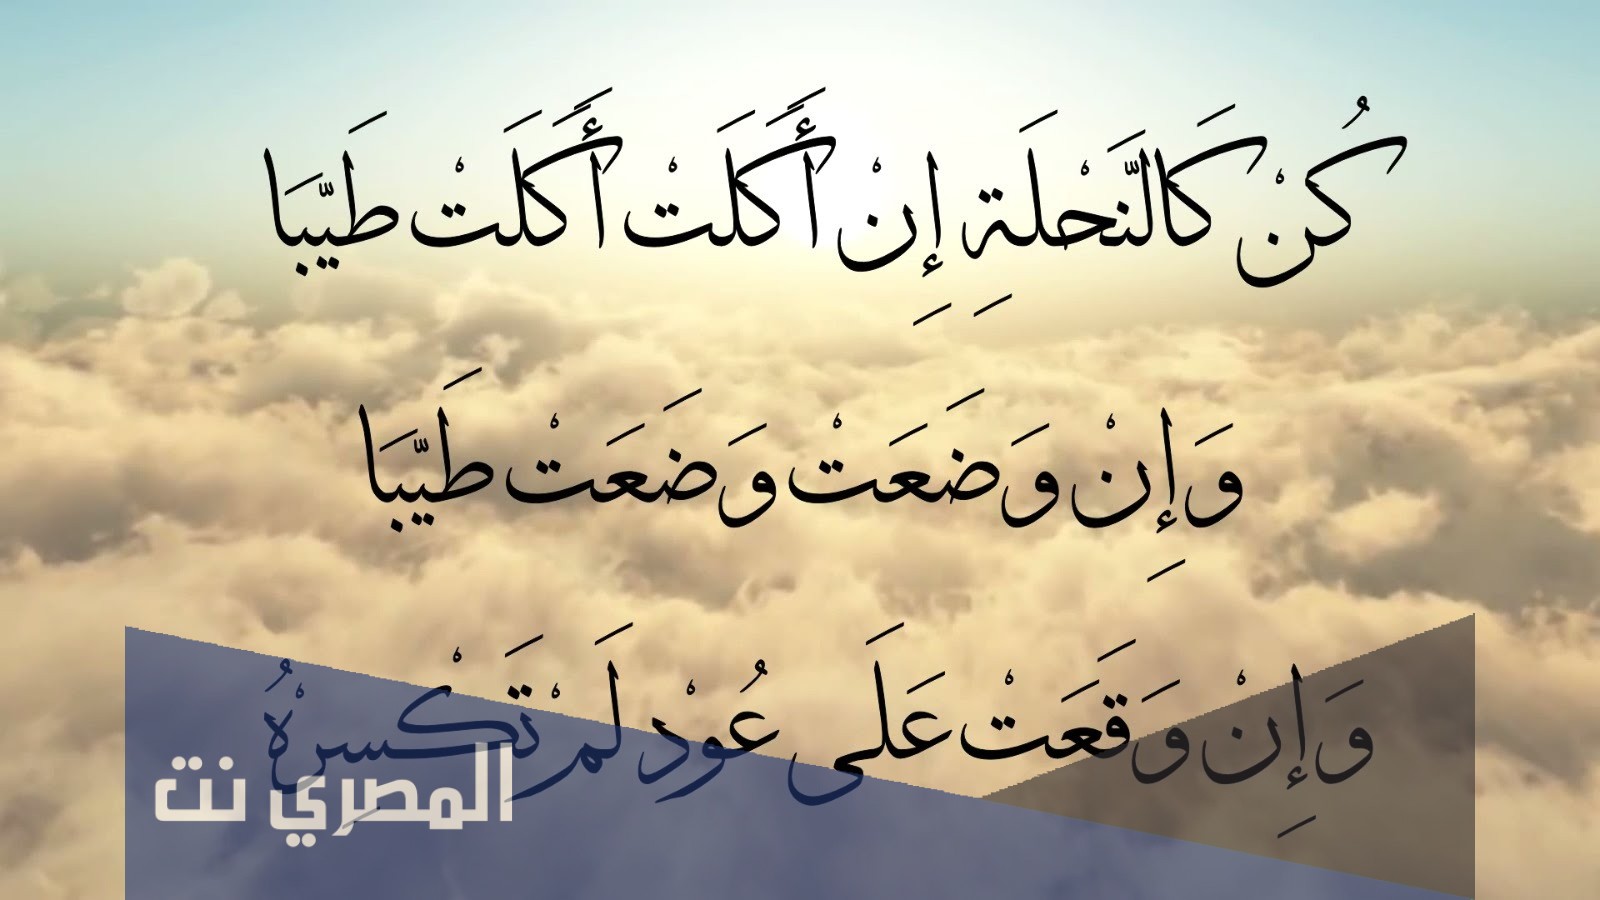 كُنْ كَالنَّحْلَةِ إِنْ أَكَلَتْ أَكَلَتْ طَيِّبَا
وَإِنْ وَضَعَتْ وَضَعَتْ طَيِّبَا
وَإِنْ وَقَعَتْ عَلَى عُوْدِ لَمْ تَكْسِرْهُ
المصري نت